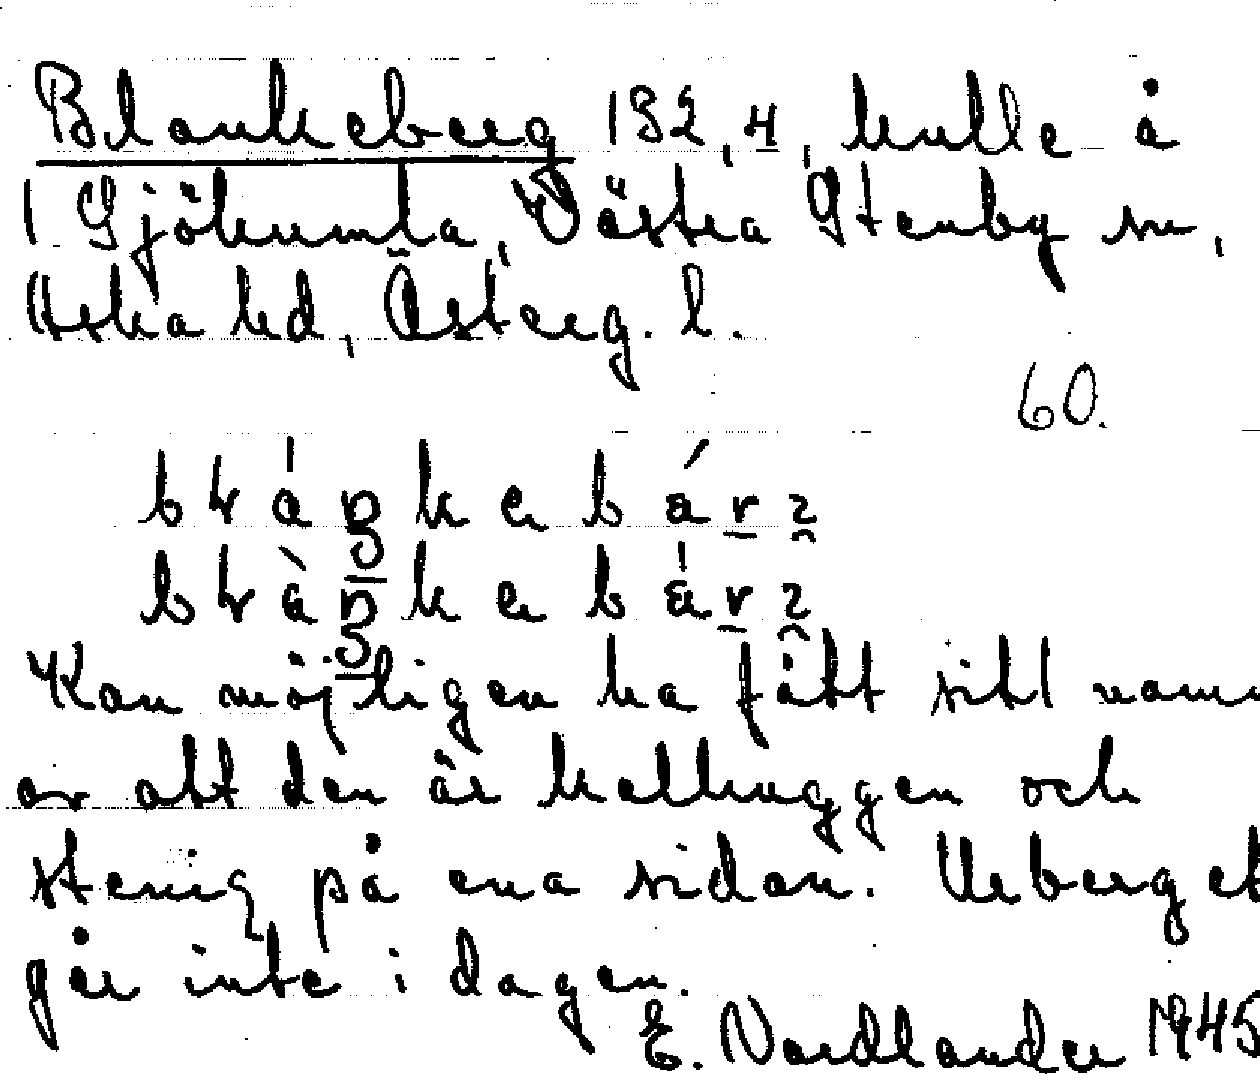 Blankeberg 132,4, kulle å
1 Sjökumla, Västra Stenby sn,
Aska hd, Österg. l.
60.
Kan möjligen ha fått sitt namn
av att den är kalhuggen och
stenig på ena sidan. Urberget
går inte i dagen.
E. Nordlander 1945